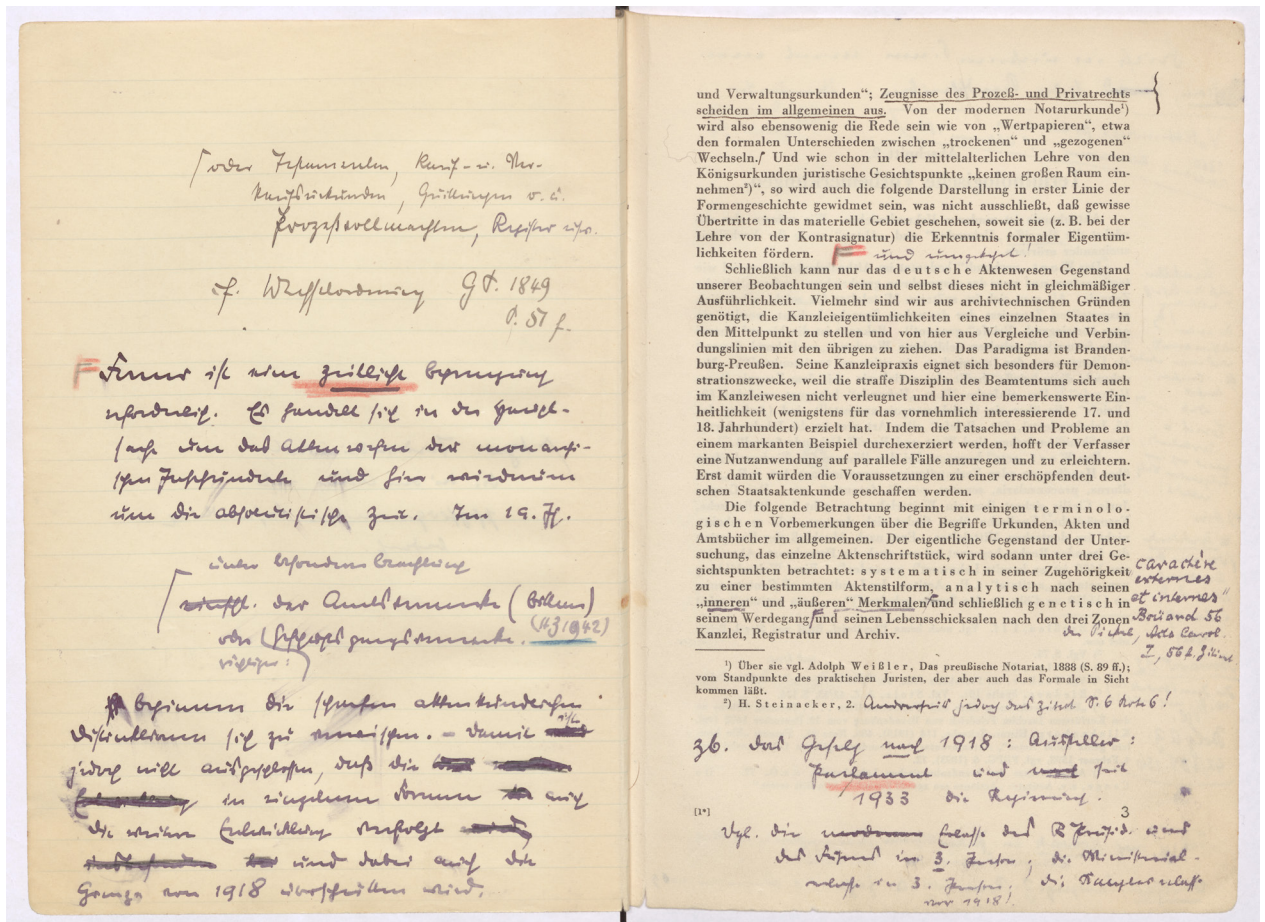 oder Testamenten, Kauf- u. Ver-
kaufsurkunden, Quittungen o. ä.
Prozeßvollmachten, Register usw.
cf. Wechselordnung GS. 1849
S. 51 f.
F Ferner ist eine zeitliche Begrenzung
erforderlich. Es handelt sich in der Haupt-
sache um das Aktenwesen der monarchi-
schen Jahrhunderte und hier wiederum
um die absolutistische Zeit. Im 19. Jh.
unter besonderer Beachtung
einschl. der Amtsvermerke (Göllner)
(AZ 1942)
oder Geschäftsgangsvermerke.
richtiger:
beginnen die scharfen aktenkundlichen
Distinktionen sich zu verwischen. – Damit ist
jedoch nicht ausgeschlossen, daß die
in einzelnen Formen auch
die weitere Entwicklung verfolgt
und dabei auch die
Grenze von 1918 überschritten wird.
und Verwaltungsurkunden“; Zeugnisse des Prozeß- und Privatrechts
scheiden im allgemeinen aus. Von der modernen Notarurkunde¹)
wird also ebensowenig die Rede sein wie von „Wertpapieren“, etwa
den formalen Unterschieden zwischen „trockenen“ und „gezogenen“
Wechseln. Und wie schon in der mittelalterlichen Lehre von den
Königsurkunden juristische Gesichtspunkte „keinen großen Raum ein-
nehmen²)“, so wird auch die folgende Darstellung in erster Linie der
Formengeschichte gewidmet sein, was nicht ausschließt, daß gewisse
Übertritte in das materielle Gebiet geschehen, soweit sie (z. B. bei der
Lehre von der Kontrasignatur) die Erkenntnis formaler Eigentüm-
lichkeiten fördern. F und umgekehrt!
Schließlich kann nur das deutsche Aktenwesen Gegenstand
unserer Beobachtungen sein und selbst dieses nicht in gleichmäßiger
Ausführlichkeit. Vielmehr sind wir aus archivtechnischen Gründen
genötigt, die Kanzleieigentümlichkeiten eines einzelnen Staates in
den Mittelpunkt zu stellen und von hier aus Vergleiche und Verbin-
dungslinien mit den übrigen zu ziehen. Das Paradigma ist Branden-
burg-Preußen. Seine Kanzleipraxis eignet sich besonders für Demon-
strationszwecke, weil die straffe Disziplin des Beamtentums sich auch
im Kanzleiwesen nicht verleugnet und hier eine bemerkenswerte Ein-
heitlichkeit (wenigstens für das vornehmlich interessierende 17. und
18. Jahrhundert) erzielt hat. Indem die Tatsachen und Probleme an
einem markanten Beispiel durchexerziert werden, hofft der Verfasser
eine Nutzanwendung auf parallele Fälle anzuregen und zu erleichtern.
Erst damit würden die Voraussetzungen zu einer erschöpfenden deut-
schen Staatsaktenkunde geschaffen werden.
Die folgende Betrachtung beginnt mit einigen terminolo-
gischen Vorbemerkungen über die Begriffe Urkunden, Akten und
Amtsbücher im allgemeinen. Der eigentliche Gegenstand der Unter-
suchung, das einzelne Aktenschriftstück, wird sodann unter drei Ge-
sichtspunkten betrachtet: systematisch in seiner Zugehörigkeit
zu einer bestimmten Aktenstilform, analytisch nach seinen
„inneren“ und „äußeren“ Merkmalen und schließlich genetisch in
seinem Werdegang und seinen Lebensschicksalen nach den drei Zonen
Kanzlei, Registratur und Archiv.
caractère
externes
et internes“
Boüard 56
Acta Carol.
I, 56
¹) Über sie vgl. Adolph Weißler, Das preußische Notariat, 1888 (S. 89 ff.);
vom Standpunkte des praktischen Juristen, der aber auch das Formale in Sicht
kommen läßt.
²) H. Steinacker, 2. Andrerseits jedoch das Zitat S. 6 Note 6!
zb. das Gesetz nach 1918: Aussteller:
Parlament und seit
1933 die Regierung.
[1*]
3
Vgl. die modernen Erlasse des R Präsid. und
des Führers in 3. Person; die Ministerial-
erlasse in 3. Person; die Kanzlererlasse
vor 1918!